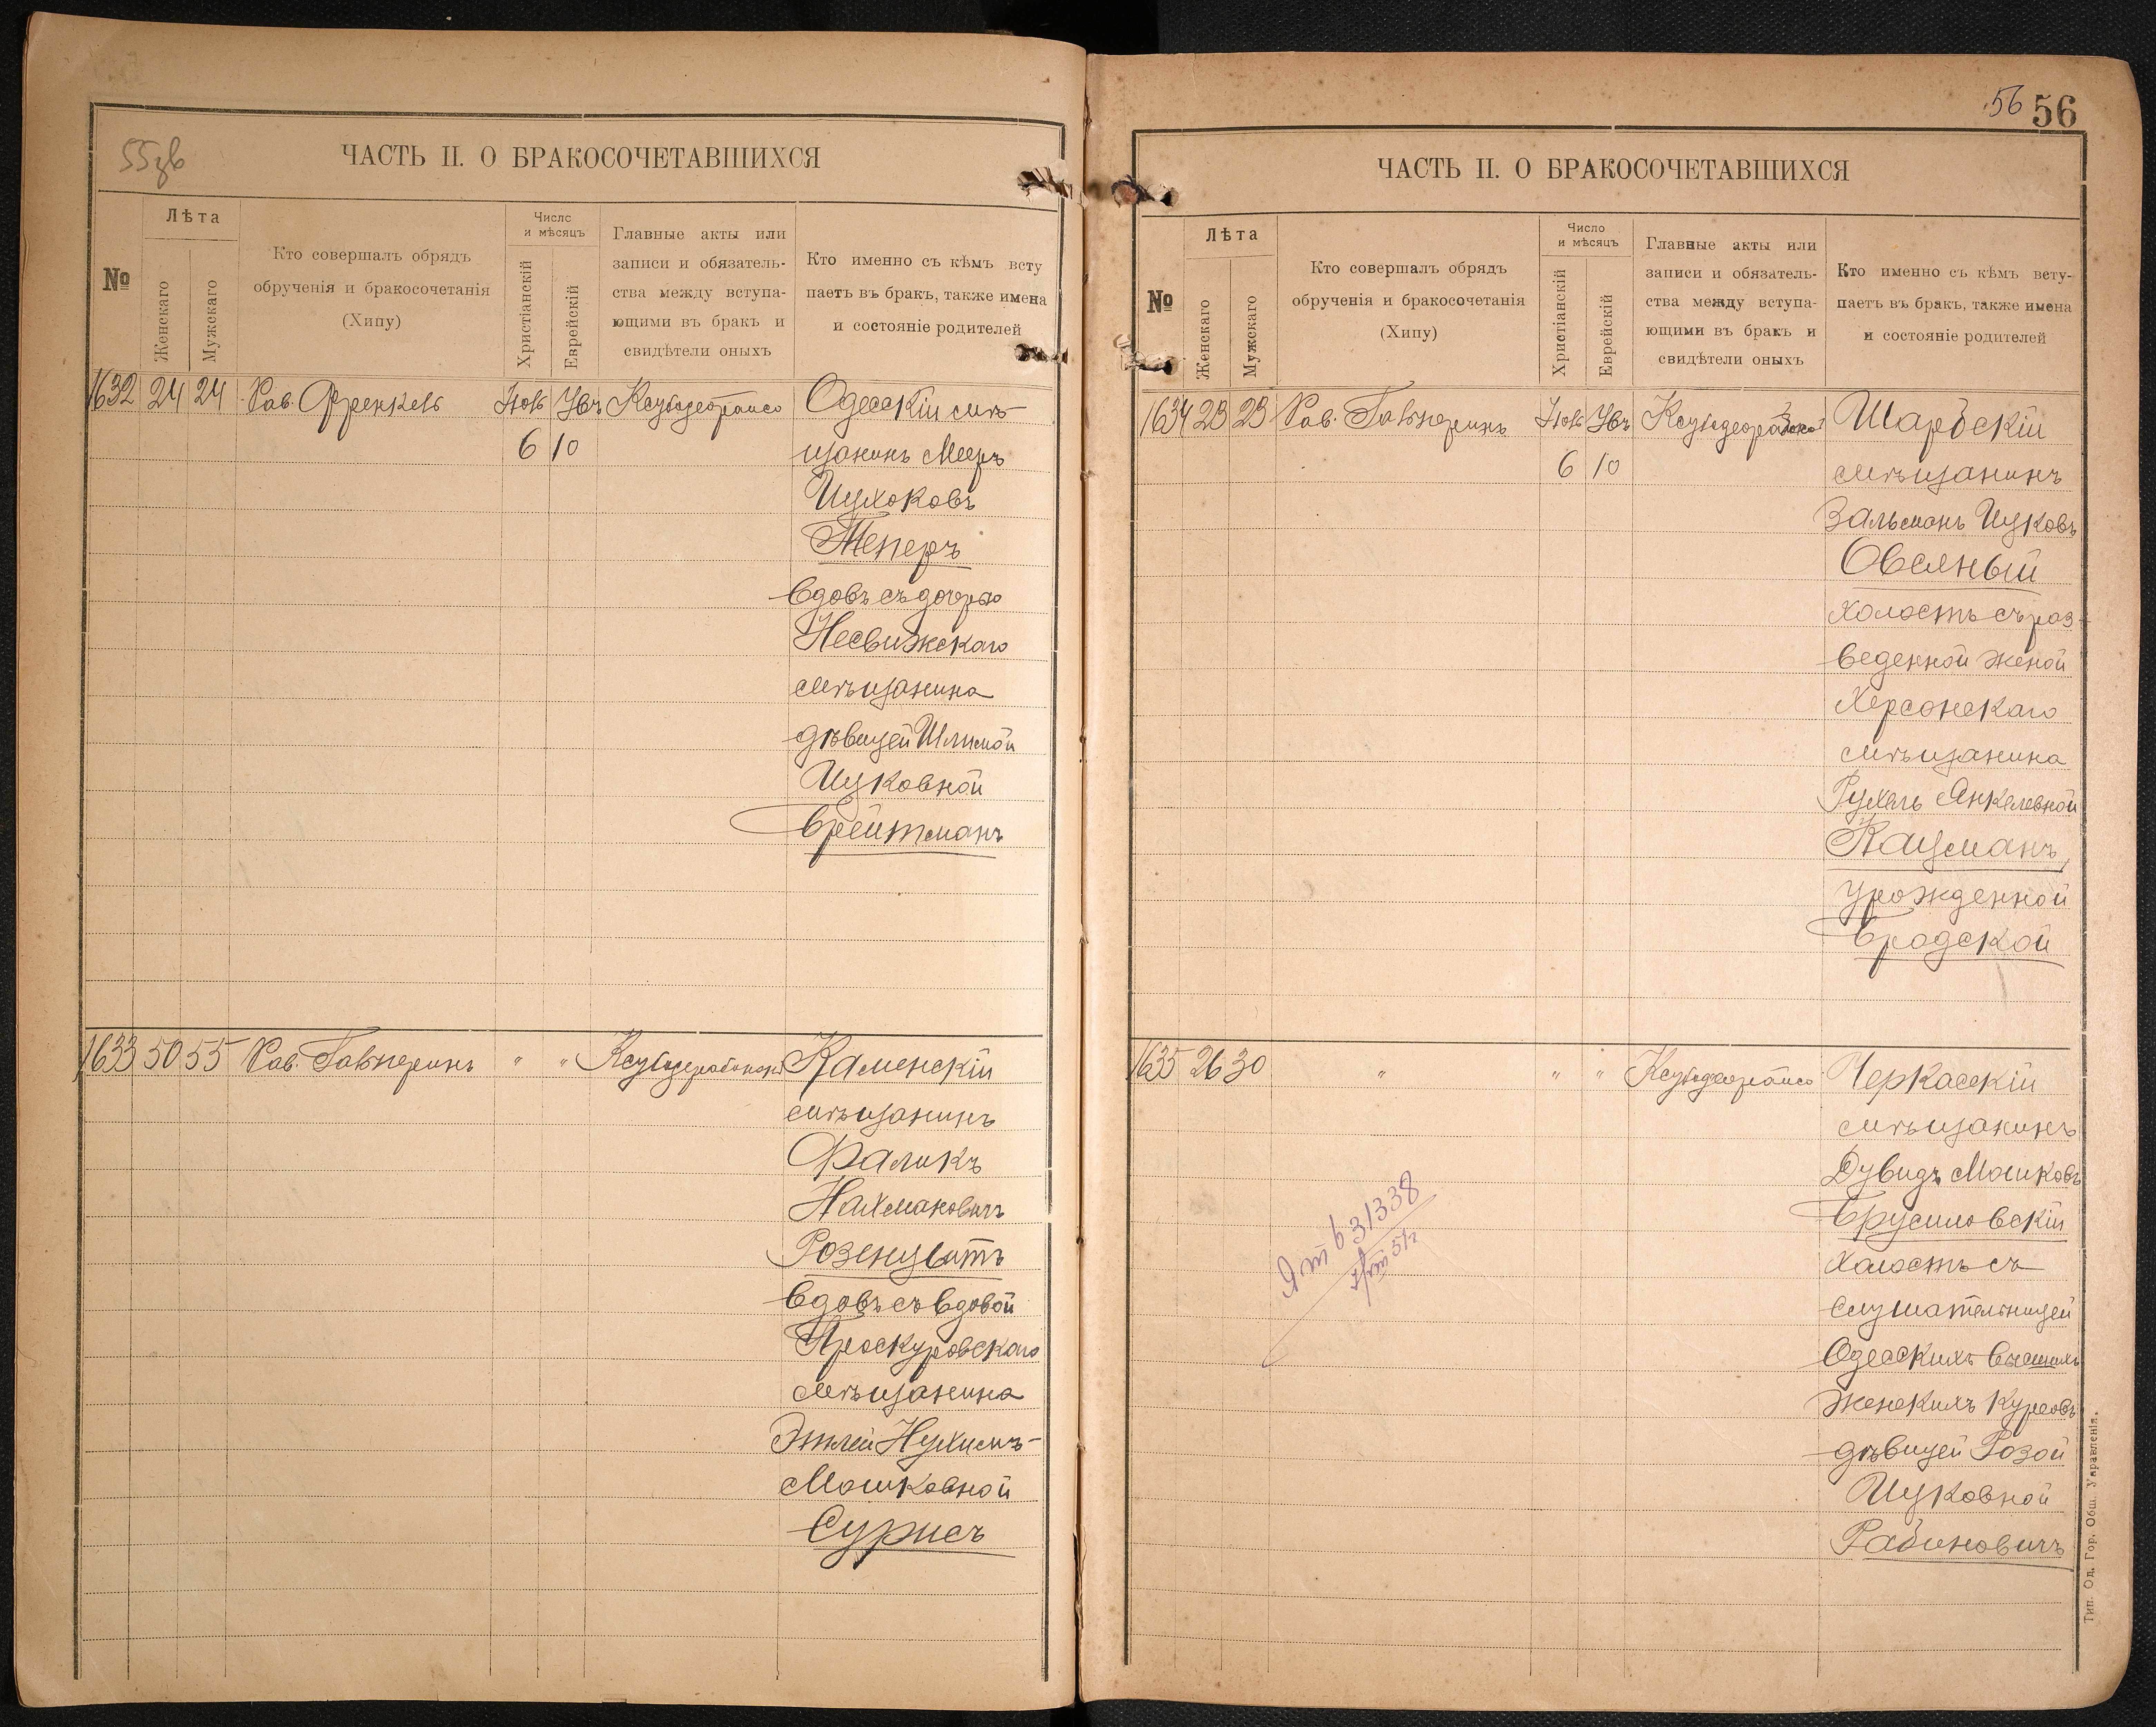 55зв
ЧАСТЬ II. О БРАКОСОЧЕТАВШИХСЯ
№
Лѣта
Женскаго
Мужскаго
Кто совершалъ обрядъ
обрученія и бракосочетанія
(Хипу)
Число
и мѣсяцъ
Христіанскій
Еврейскій
Главные акты или
записи и обязатель-
ства между вступа-
ющими въ бракъ и
свидѣтели оныхъ
Кто именно съ кѣмъ всту
паетъ въ бракъ, также имена
и состояніе родителей
1632 24 24 Рав. Френкель Нояб Хбч Одесскій мѣ-
6 10 щанинъ Мееръ
Ицхоковъ
Теперъ
вдовъ съ дочерью
Несвижскаго
мѣщанина
дѣвицей Шлимой
Ицковной
Брейтманъ
1633 50 55 Рав. Гальперинъ " " Каменскій
мѣщанинъ
Фаликъ
Нахмановичъ
Розенцвитъ
вдовъ съ вдовой
Проскуровскаго
мѣщанина
Этлей Нухимъ-
Мошковной
Сурисъ
56 56
ЧАСТЬ II. О БРАКОСОЧЕТАВШИХСЯ
№
Лѣта
Женскаго
Мужскаго
Кто совершалъ обрядъ
обрученія и бракосочетанія
(Хипу)
Число
и мѣсяцъ
Христіанскій
Еврейскій
Главные акты или
записи и обязатель-
ства между вступа-
ющими въ бракъ и
свидѣтели оныхъ
Кто именно съ кѣмъ всту-
паетъ въ бракъ, также имена
и состояніе родителей
1634 23 23 Рав. Гальперинъ Нояб Хбч Шаргскій
6 10 мѣщанинъ
Зальманъ Ицковъ
Овсяный
холостъ съ раз-
веденной женой
Херсонскаго
мѣщанина
Рухель Янкелевной
Кацманъ,
урожденной
Бродской
1635 26 30 " " " Черкасскій
мѣщанинъ
Дувидъ Мошковъ
Брусиловскій
холостъ съ
слушательницей
Одесскихъ Высшихъ
Женскихъ Курсовъ
дѣвицей Розой
Ицковной
Рабиновичъ
631338
Тип. Од. Гор. Общ. Управленія.